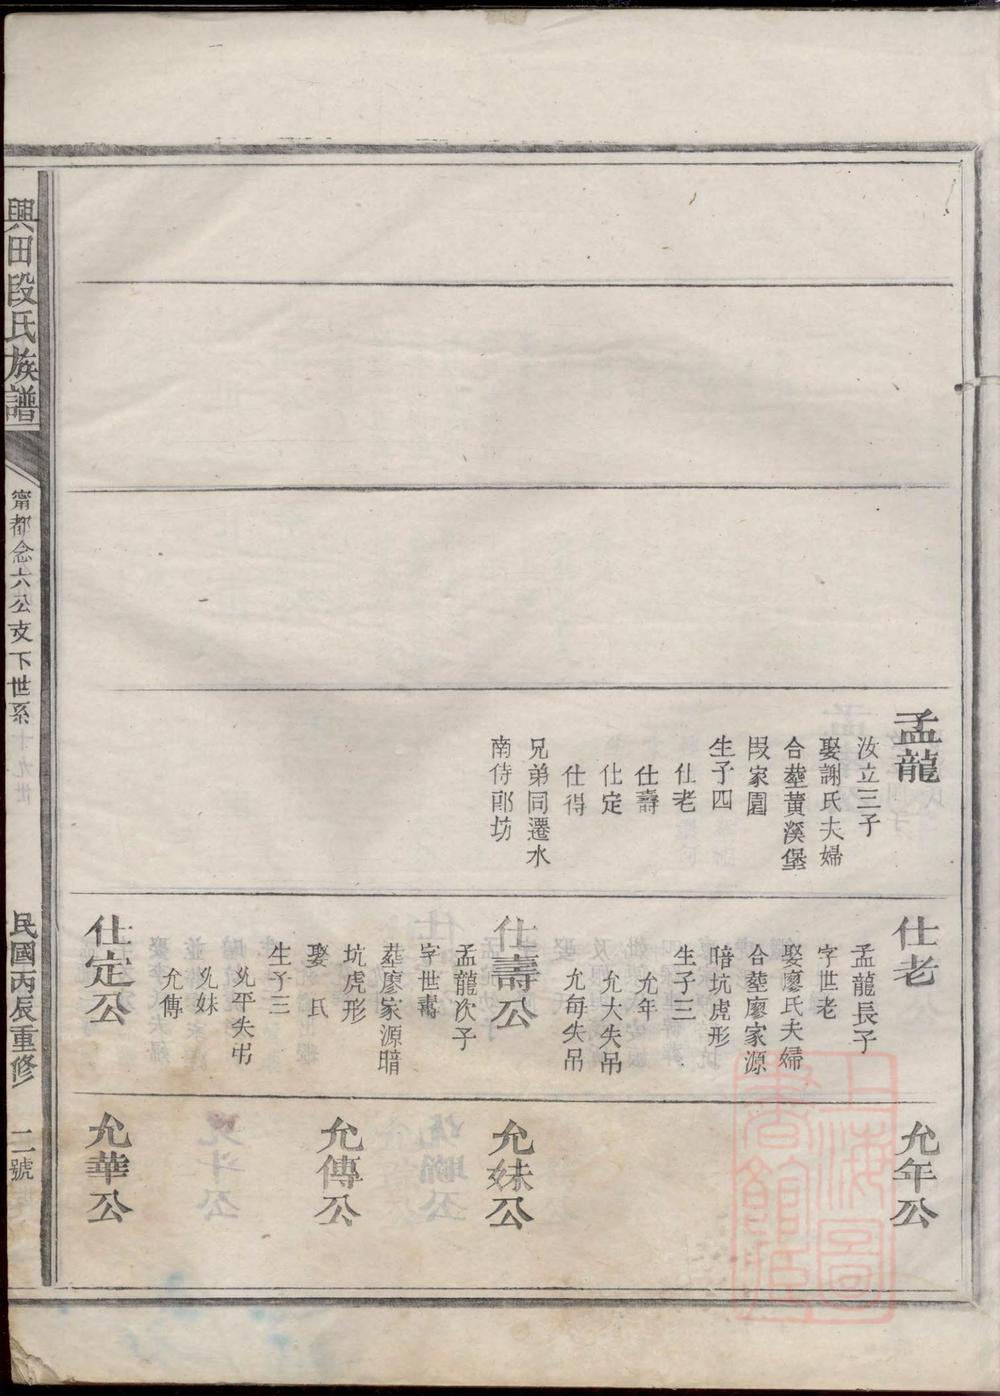 孟龍
汝立三子
娶謝氏夫婦
合塟黄溪堡
段家園
生子四
仕老
仕壽
仕定
仕得
兄弟同遷水
南侍郎坊
仕老
孟龍長子
字世老
娶廖氏夫婦
合塟廖家源
暗坑虎形
生子三
允年
允大失吊
允每失吊
仕壽公
孟龍次子
字世壽
塟廖家源暗
坑虎形
娶 氏
生子三
允平失吊
允妹
允傳
仕定公
允年公
允妹公
允傳公
允華公
興田段氏族譜
甯都念六公支下世系
民國丙辰重修
二號
上海圖書館藏